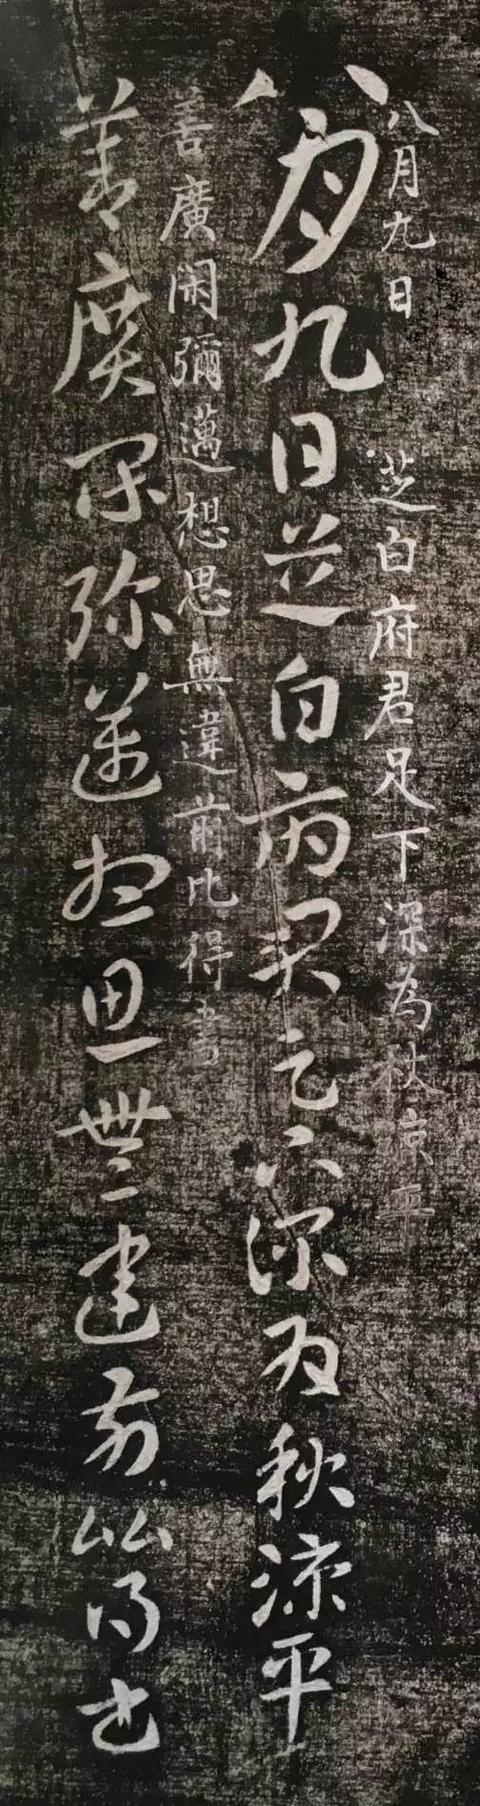 八月九日 芝白府君足下深為秋涼平
八月九日芝白府君足下深為秋涼平
善廣閑彌邁想思無違前比得書
善廣閑弥邁想思無違前比得書